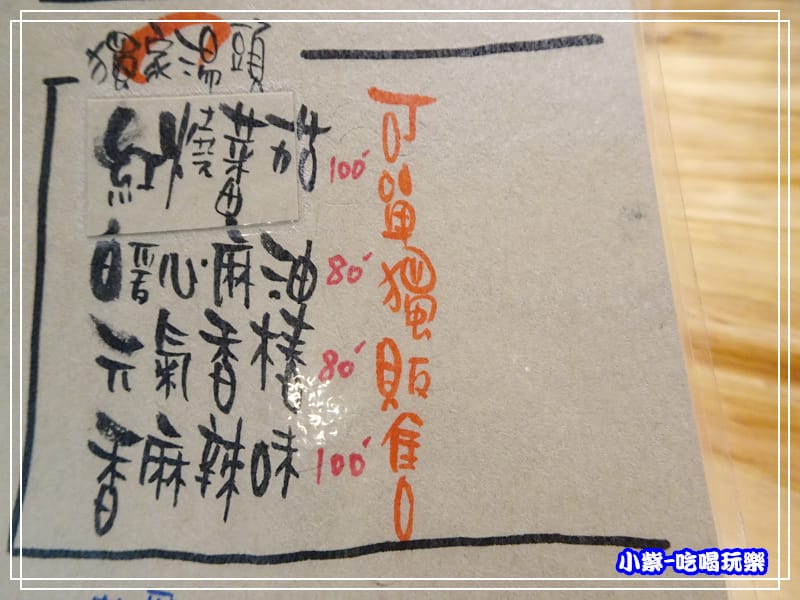 獨家湯頭
紅燒蕃茄 100
暖心麻油 80
元氣香椿 80
香麻辣味 100
可單獨販售
小紫-吃喝玩樂